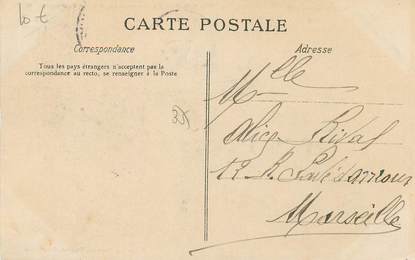 lo €
CARTE POSTALE
Correspondance
Adresse
Tous les pays étrangers n'acceptent pas la
correspondance au recto, se renseigner à la Poste
Mlle
Alice Rival
12 R.
Marseille